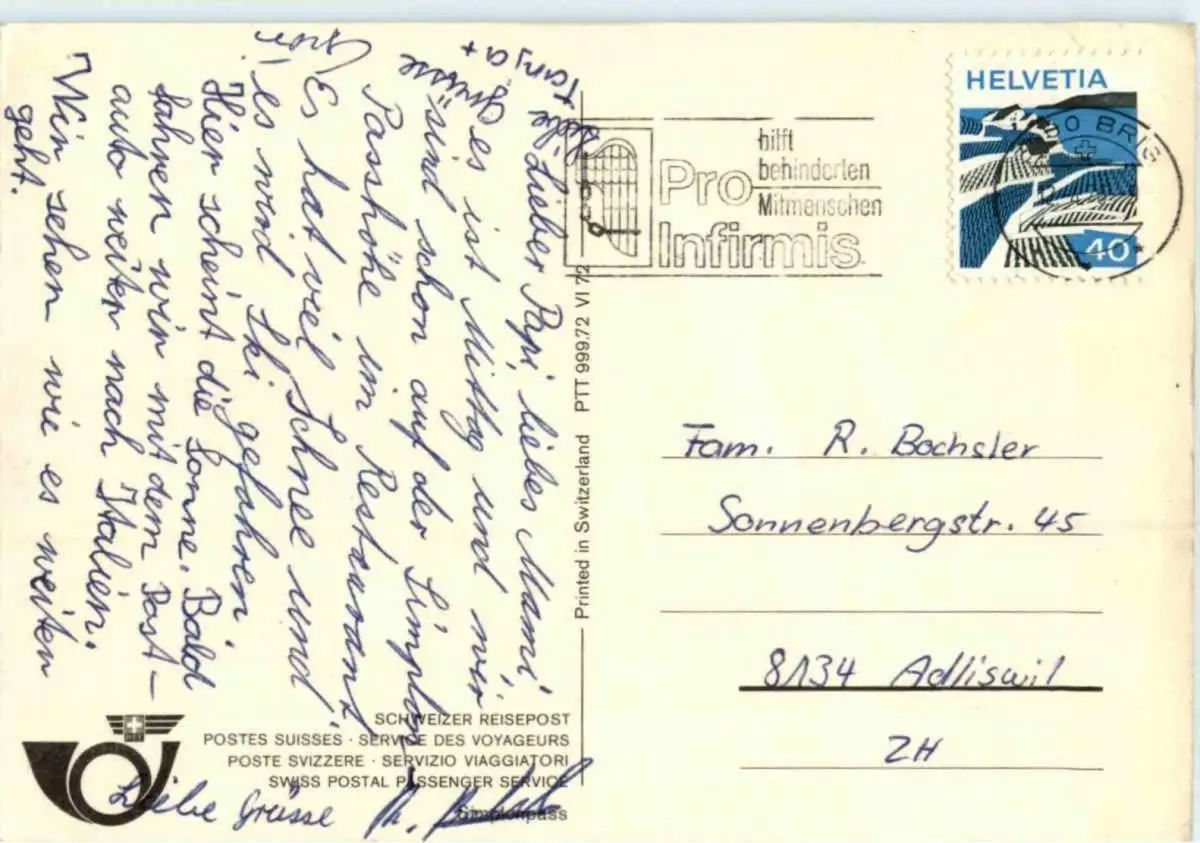 Lieber Papi, liebes Mami
es ist Mittag und wir
sind schon auf der Simplon
Passhöhe im Restaurant
Es hat viel Schnee und
es wird Ski gefahren
Hier scheint die Sonne. Bald
fahren wir mit dem Post-
auto weiter nach Italien.
Wir sehen wie es weiter
geht.
Liebe
Grüsse
Tanja +
Liebe Grüsse
hilft
behinderten
Mitmenschen
Pro
Infirmis
HELVETIA
40
BRIG
Fam. R. Bochsler
Sonnenbergstr. 45
8134 Adliswil
ZH
Printed in Switzerland PTT 999.72 VI 72
SCHWEIZER REISEPOST
POSTES SUISSES · SERVICE DES VOYAGEURS
POSTE SVIZZERE · SERVIZIO VIAGGIATORI
SWISS POSTAL PASSENGER SERVICE
Simplonpass